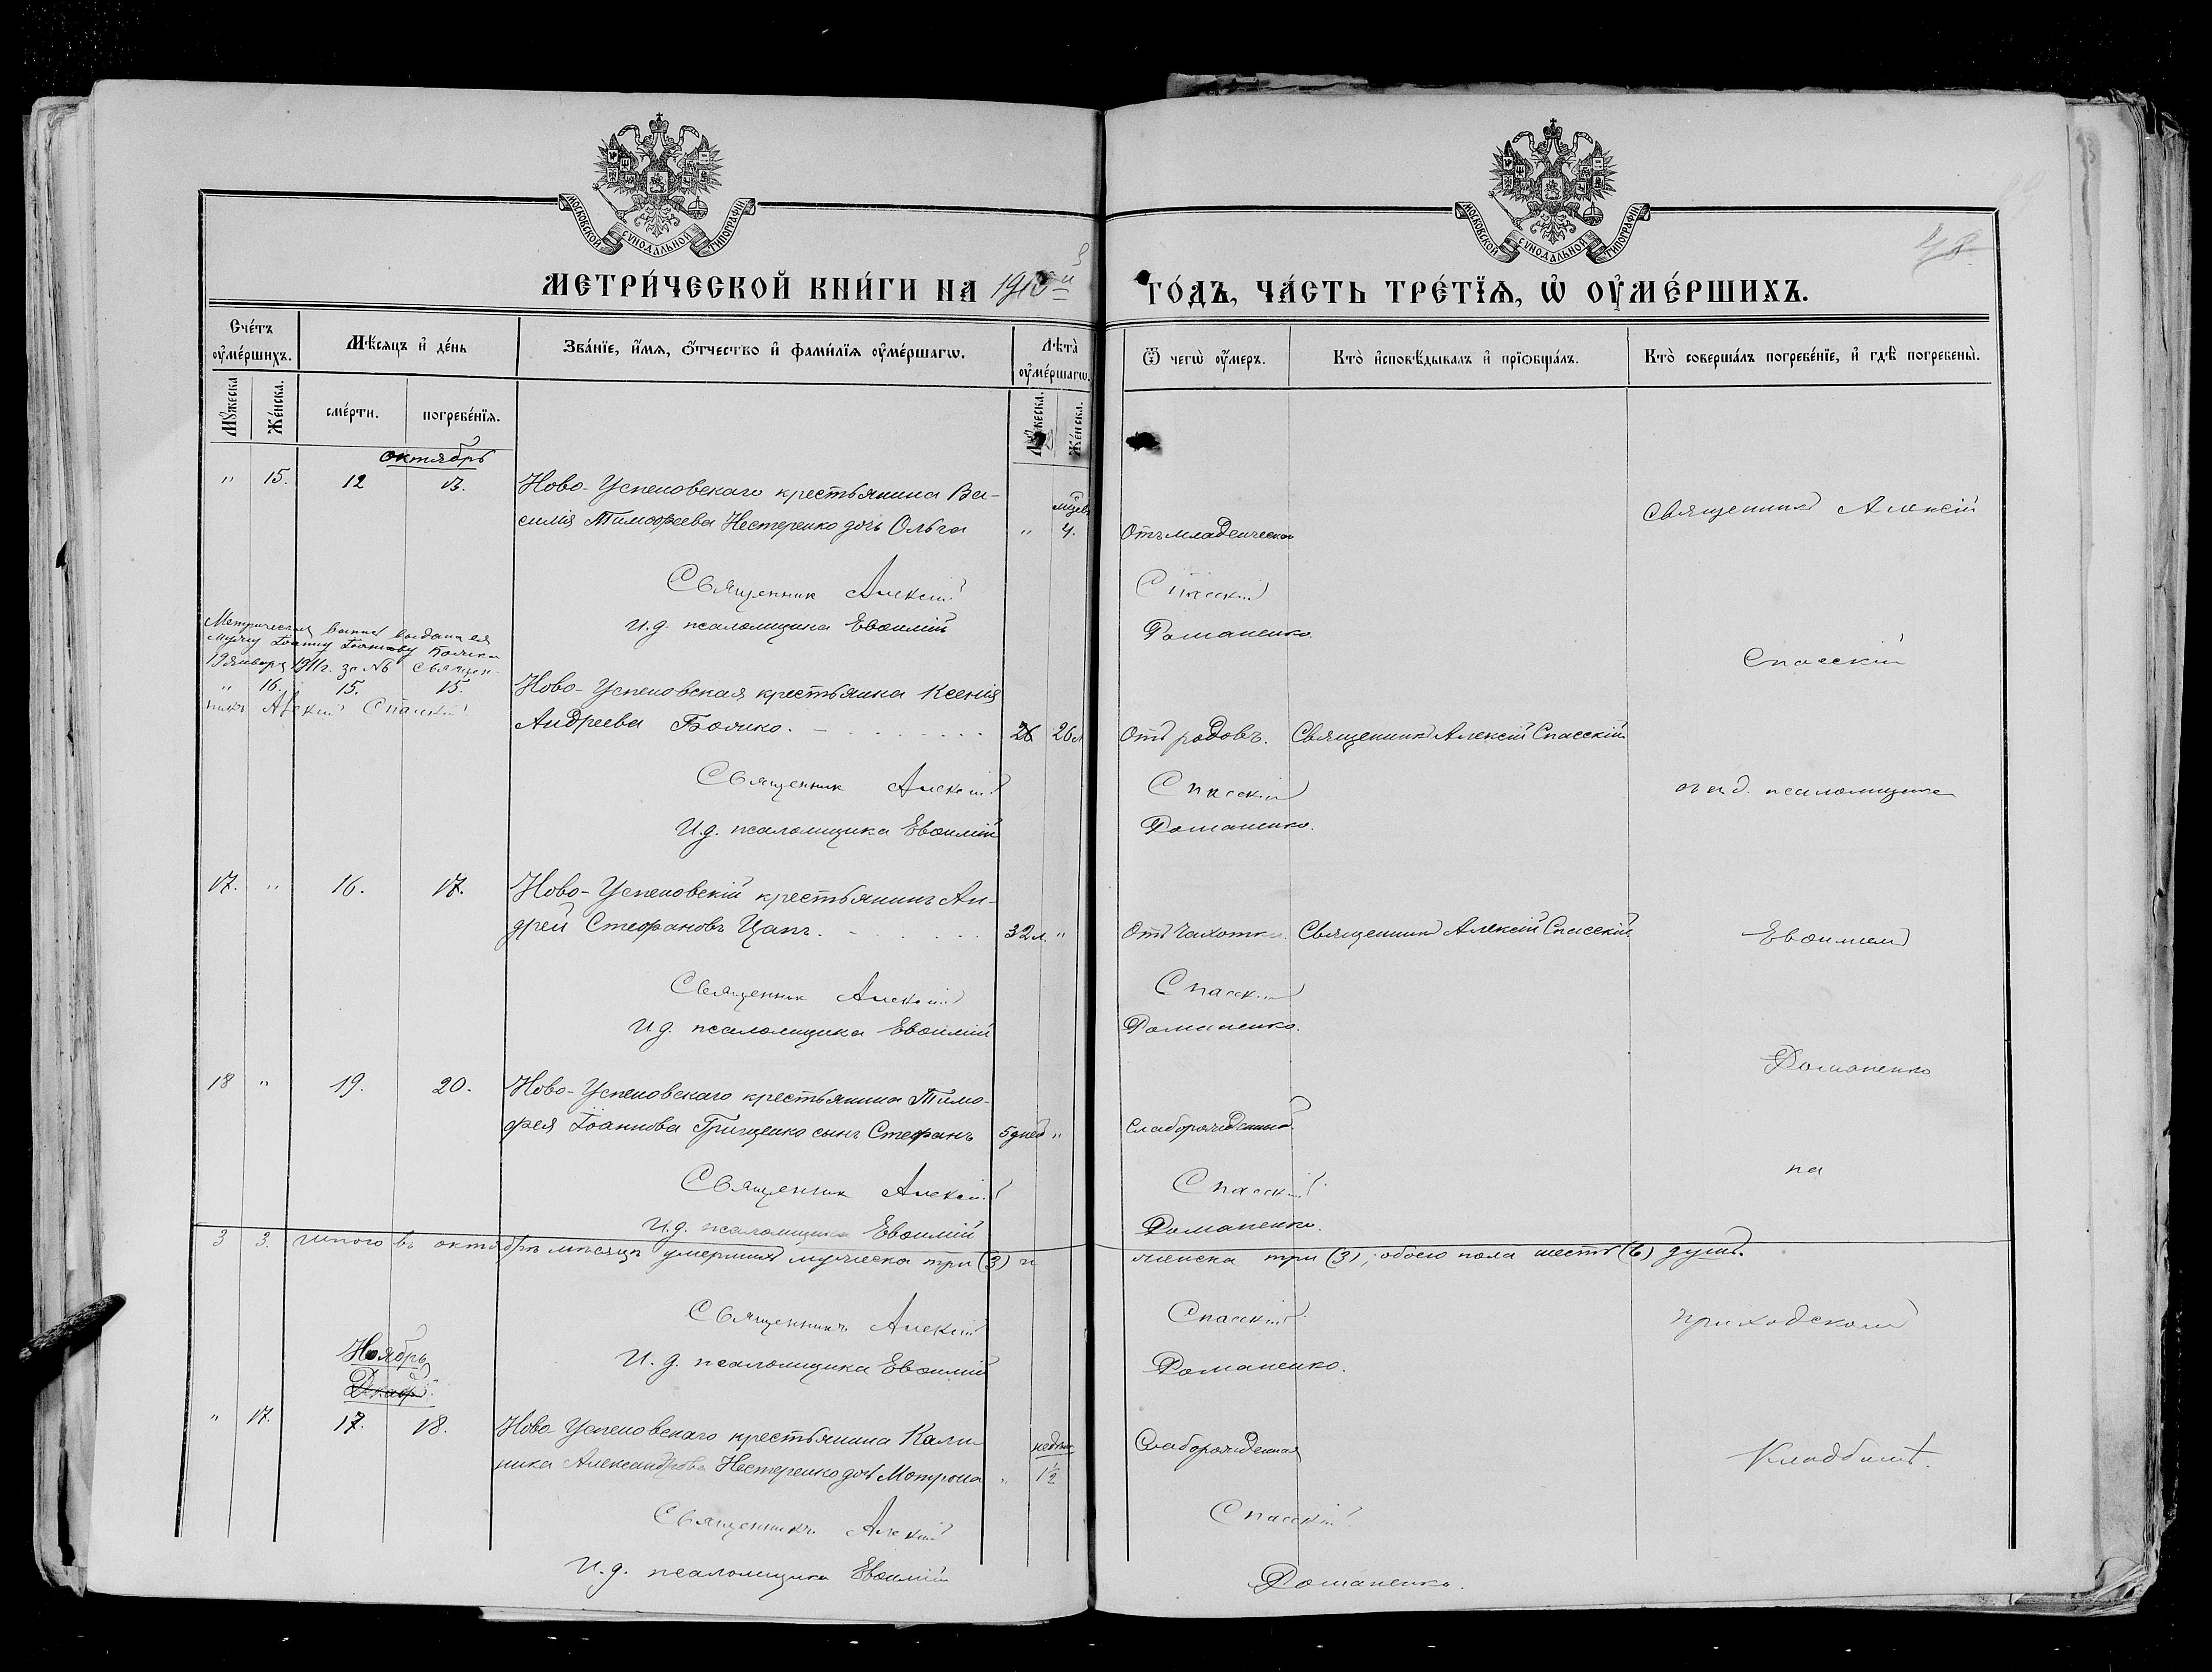 МОСКОВСКОЙ СУНОДАЛЬНОЙ ТИПОГРАФІИ
МОСКОВСКОЙ СУНОДАЛЬНОЙ ТИПОГРАФІИ
МЕТРИ́ЧЕСКОЙ КНИ́ГИ НА 1910й
ГО́ДЪ, ЧА́СТЬ ТРЕ́ТЇѦ, Ѡ҆ ОУ҆МЕ́РШИХЪ.
Сче́тъ оу҆ме́ршихъ.
Мѣ́сяцъ и҆ де́нь
Зва́нїе, и҆́мя, ѻ҆́тчество и҆ фами́лїя оу҆ме́ршагѡ.
Лѣта̀ оу҆ме́ршагѡ.
Ѿ чегѡ̀ оу҆́меръ.
Кто̀ и҆сповѣ́дывалъ и҆ прїѻбща́лъ.
Кто̀ соверша́лъ погребе́нїе, и҆ гдѣ̀ погребены̀.
Мꙋ́жеска
Же́нска.
сме́рти.
погребе́нїя.
Мꙋ́жеска.
Же́нска.
октябрь
" 15. 12 13. Ново-Успеновскаго крестьянина Ва-
силія Тимофеева Нестеренко дочь Ольга " мѣсев 4. Отъ младенческой
Священникъ Алексій
Священник Алексій Спасскій
И.д. псаломщика Евѳимій Романенко.
Метрическая выпись выдана ея
мужу Іоанну Іоаннову Божко
19 января 1911г. за № Священ-
никъ Алексій Спасскій
Спасскій
" 16. 15. 15. Ново-Успеновская крестьянка Ксенія
Андреева Божко. 26 26 л Отъ родовъ. Священникъ Алексій Спасскій
Священник Алексій Спасскій
И.д. псаломщика Евѳимій Романенко.
и.д. псаломщика
17. " 16. 17. Ново-Успеновскій крестьянинъ Ан-
дрей Стефановъ Цапъ. 32 л. " Отъ чахотки. Священникъ Алексій Спасскій
Евѳимій
Священник Алексій Спасскій
И.д. псаломщика Евѳимій Романенко.
Романенко
18 " 19. 20. Ново-Успеновскаго крестьянина Тимо-
фея Іоаннова Грищенко сынъ Стефанъ 5 дней " Слаборожденный
на
Священник Алексій Спасскій
И.д. псаломщика Евѳимій Романенко.
3 3. Итого въ октябрѣ мѣсяцѣ умершихъ мужеска три (3) и
женска три (3), обоего пола шесть (6) душъ.
Священникъ Алексій Спасскій
приходскомъ
И.д. псаломщика Евѳимій Романенко.
Ноябрь
" 17. 17. 18. Ново-Успеновскаго крестьянина Кали-
ника Александрова Нестеренко дочь Мотрона " недѣль 1½ Слаборожденная
Кладбищѣ.
Священникъ Алексій Спасскій
И.д. псаломщика Евѳимій Романенко.